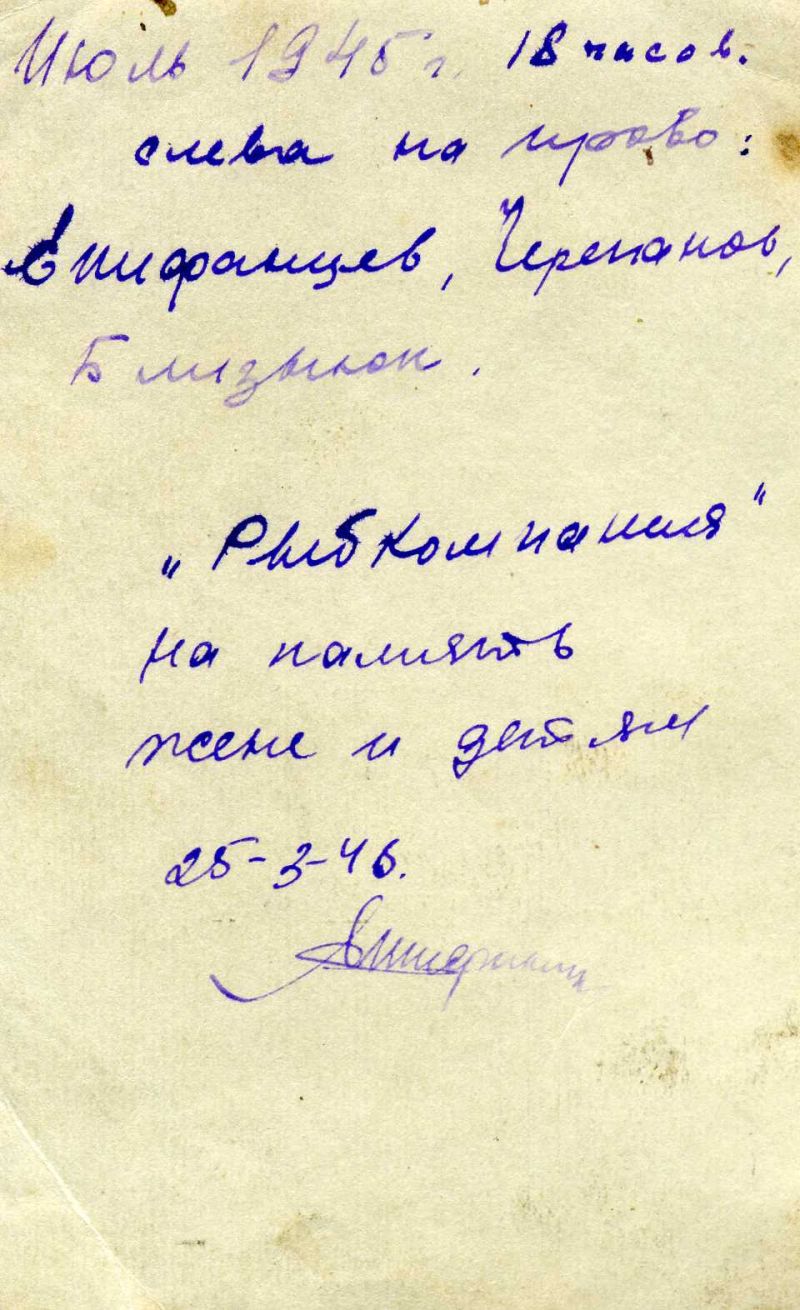 Июль 1945 г. 18 часов.
слева на право:
Епифанцев, Черепанов,
Близнюк.
„Рыбкомпания"
на память
жене и детям
25-3-46.
Епифанцев